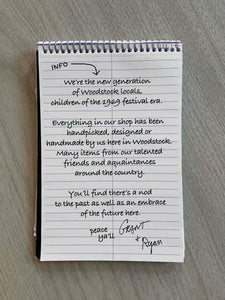 INFO
We're the new generation
of Woodstock locals,
children of the 1969 festival era.
Everything in our shop has been
handpicked, designed or
handmade by us here in Woodstock.
Many items from our talented
friends and aquaintances
around the country.
You'll find there's a nod
to the past as well as an embrace
of the future here.
peace
ya'll
Grant
+ Ryan